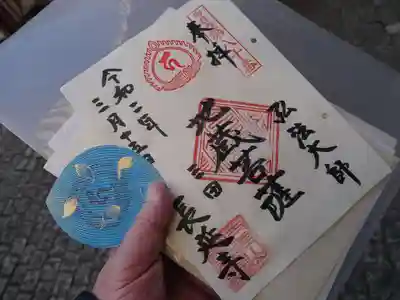 奉拝
弘法大師
地蔵菩薩
三田 長延寺
令和二年
三月十五